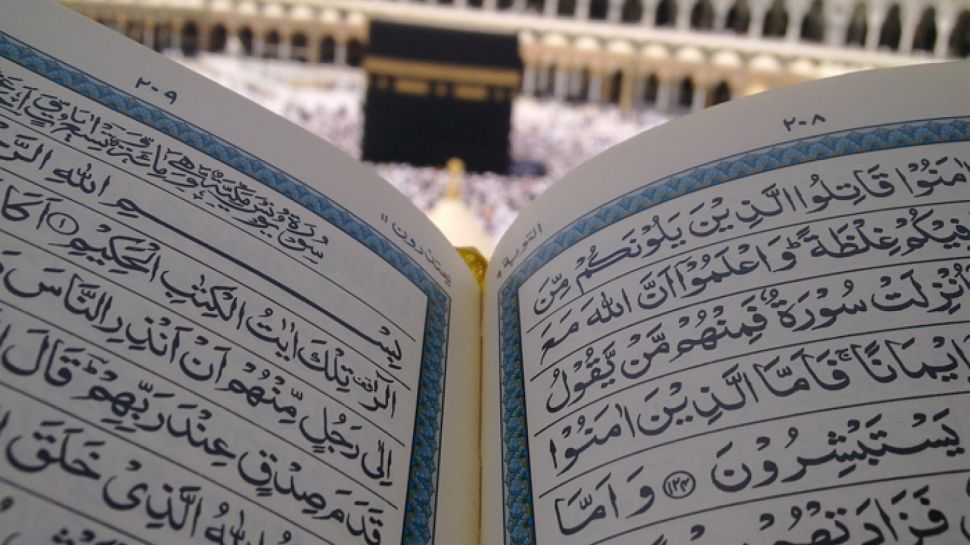 ٢٠٨
التوبة ٩
اٰمَنُوْا قَاتِلُوا الَّذِيْنَ يَلُوْنَكُمْ مِّنَ
فِيْكُمْ غِلْظَةً ؕ وَاعْلَمُوْۤا اَنَّ اللّٰهَ مَعَ
اُنْزِلَتْ سُوْرَةٌ فَمِنْهُمْ مَّنْ يَّقُوْلُ
اِيْمَانًا ۚ فَاَمَّا الَّذِيْنَ اٰمَنُوْا
يَسْتَبْشِرُوْنَ ﴿١٢٤﴾ وَاَمَّا
فَزَادَتْهُمْ
٢٠٩
يعتذرون ١١
سُوْرَةُ يُوْنُسَ مَكِّيَّةٌ وَّهِيَ مِائَةٌ وَّتِسْعُ اٰيَاتٍ
بِسْمِ اللّٰهِ
الٓرٰ تِلْكَ اٰيٰتُ الْكِتٰبِ الْحَكِيْمِ ﴿١﴾ اَكَانَ
اِلٰى رَجُلٍ مِّنْهُمْ اَنْ اَنْذِرِ النَّاسَ
قَدَمَ صِدْقٍ عِنْدَ رَبِّهِمْ ؕ قَالَ
اللّٰهُ الَّذِيْ خَلَقَ